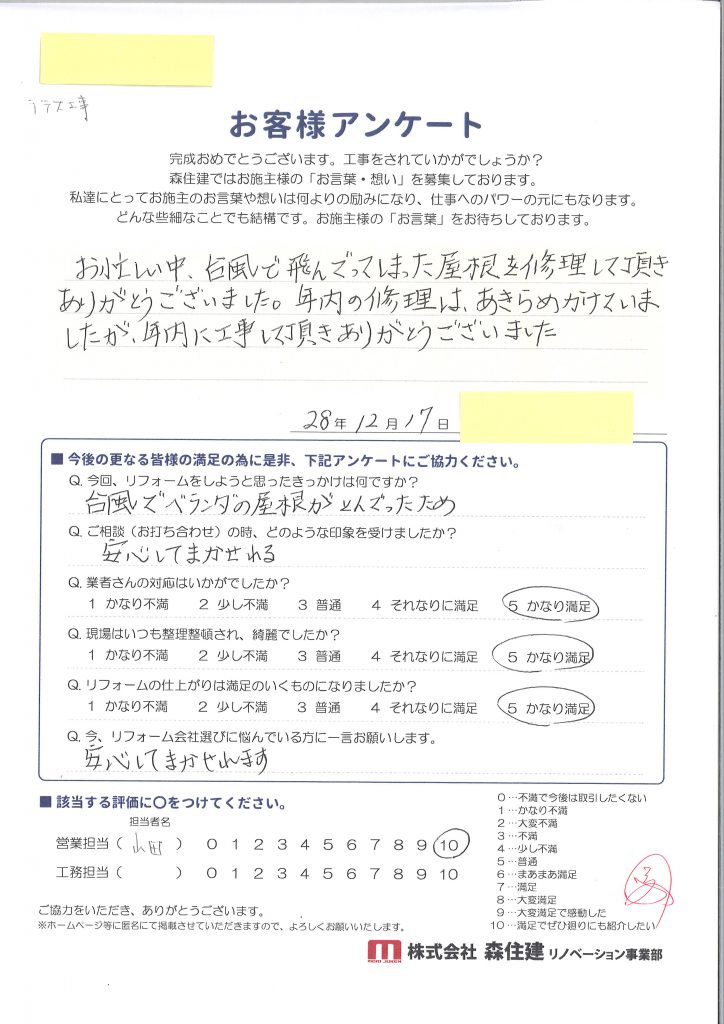 テラス工事
お客様アンケート
完成おめでとうございます。工事をされていかがでしょうか？
森住建ではお施主様の「お言葉・想い」を募集しております。
私達にとってお施主のお言葉や想いは何よりの励みになり、仕事へのパワーの元にもなります。
どんな些細なことでも結構です。お施主様の「お言葉」をお待ちしております。
お忙しい中、台風で飛んでってしまった屋根を修理して頂き
ありがとうございました。年内の修理は、あきらめかけていま
したが、年内に工事して頂きありがとうございました
28年 12月 17日
■ 今後の更なる皆様の満足の為に是非、下記アンケートにご協力ください。
Q. 今回、リフォームをしようと思ったきっかけは何ですか？
台風でベランダの屋根がとんでったため
Q. ご相談（お打ち合わせ）の時、どのような印象を受けましたか？
安心してまかせれる
Q. 業者さんの対応はいかがでしたか？
1 かなり不満 2 少し不満 3 普通 4 それなりに満足 5 かなり満足
Q. 現場はいつも整理整頓され、綺麗でしたか？
1 かなり不満 2 少し不満 3 普通 4 それなりに満足 5 かなり満足
Q. リフォームの仕上がりは満足のいくものになりましたか？
1 かなり不満 2 少し不満 3 普通 4 それなりに満足 5 かなり満足
Q. 今、リフォーム会社選びに悩んでいる方に一言お願いします。
安心してまかせれます
■ 該当する評価に〇をつけてください。
担当者名
営業担当（ 山田 ） 0 1 2 3 4 5 6 7 8 9 10
工務担当（ ） 0 1 2 3 4 5 6 7 8 9 10
0…不満で今後は取引したくない
1…かなり不満
2…大変不満
3…不満
4…少し不満
5…普通
6…まあまあ満足
7…満足
8…大変満足
9…大変満足で感動した
10…満足でぜひ廻りにも紹介したい
ご協力をいただき、ありがとうございます。
※ホームページ等に匿名にて掲載させていただきますので、よろしくお願いいたします。
株式会社 森住建 リノベーション事業部